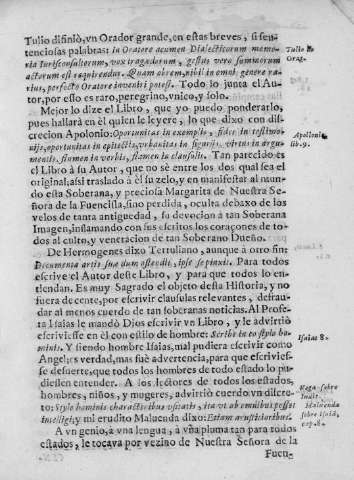 Tulio difiniò, vn Orador grande, en estas breves, si sen-
tenciosas palabras: In Oratore acumen Dialecticorum memo-
ria Iurisconsultorum, vox tragædorum, gestus vero summorum
actorum est requirendus. Quam ob rem, nihil in omni genere ra-
rius, perfecto Oratore inveniri potest. Todo lo junta el Au-
tor, por esso es raro, peregrino, vnico, y solo.
Tulio de
Orag.
Mejor lo dize el Libro, que yo puedo ponderarlo,
pues hallarà en èl quien le leyere, lo que dixo con dis-
crecion Apolonio: Oportunitas in exemplis, fides in testimo-
nijs, oportunitas in epitectis, vrbanitas in figuris, virtus in argu-
mentis, flumen in verbis, flamen in clausulis. Tan parecido es
Apolonio
lib. 9.
el Libro à su Autor, que no sè entre los dos qual sea el
original; assi traslado à èl su zelo, y en manifestar al mun-
do esta Soberana, y preciosa Margarita de Nuestra Se-
ñora de la Fuencisla, sino perdida, oculta debaxo de los
velos de tanta antiguedad, su devocion à tan Soberana
Imagen, inflamando con sus escritos los coraçones de to-
dos al culto, y veneracion de tan Soberano Dueño.
De Hermogenes dixo Tertuliano, aunque à otro fin:
Documenta artis suæ dum ostendit, ipse se pinxit. Para todos
escrive el Autor deste Libro, y para que todos lo en-
tiendan. Es muy Sagrado el objeto desta Historia, y no
fuera decente, por escrivir clausulas relevantes, defrau-
dar al menos cuerdo de tan soberanas noticias. Al Profe-
ta Isaias le mandò Dios escrivir vn Libro, y le advirtiò
escriviesse en èl con estilo de hombre: Scribe in eo stylo ho-
minis. Y siendo hombre Isaias, mal pudiera escrivir como
Isaias 8.
Angel; es verdad, mas fuè advertencia, para que escrivies-
se de suerte, que todos los hombres de todo estado lo pu-
diessen entender. A los lectores de todos los estados,
hombres, niños, y mugeres, advirtiò cuerdo vn discre-
to: Stylo hominis characteribus vsitatis, ita vt ab omnibus posset
intelligi; y mi erudito Maluenda dixo: Etiam a rusticioribus.
Haga sobre
Maluenda
sobre Isaiæ,
cap. 8.
A vn genio, à vna lengua, à vna pluma tan para todos
estados, le tocava por vezino de Nuestra Señora de la
Fuen-